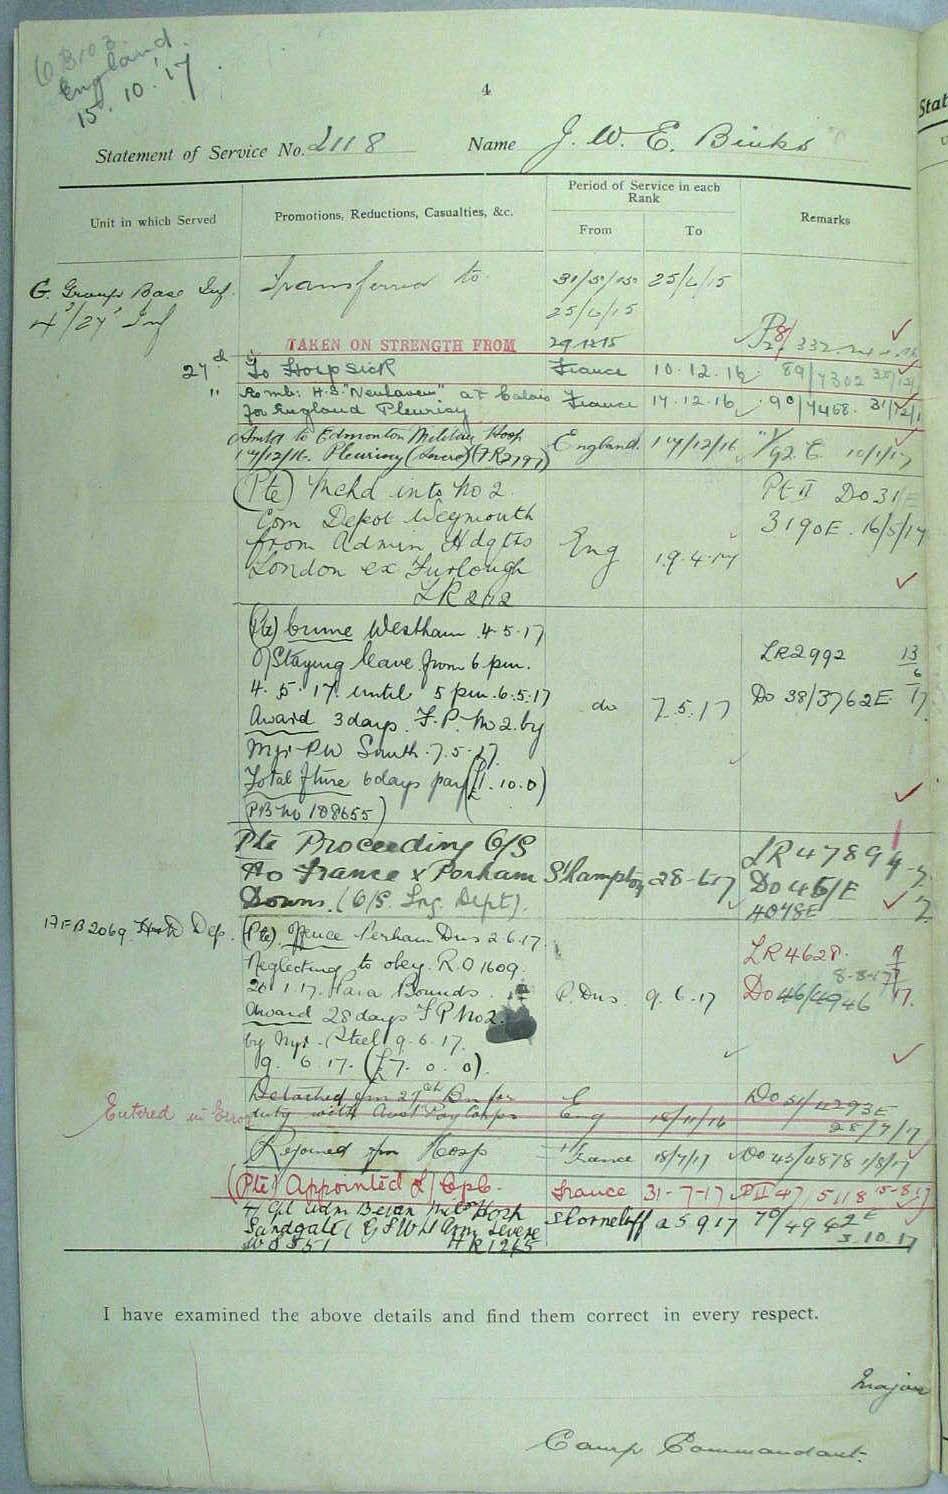 England
15. 10. 17
4
Statement of Service No. 2118 Name J. W. E. Binks
Unit in which Served
Promotions, Reductions, Casualties, &c.
Period of Service in each Rank
From
To
Remarks
G. Group Base Inf. Transferred to 31/5/15 25/6/15
4th/27th Inf 25/6/15
TAKEN ON STRENGTH FROM 29 12 15
27th To Hosp Sick France 10.12.16 89/4302
" Remb: H.S. "Newhaven" at Calais France 17.12.16 90/4468. 31/12/1
for England Pleurisy
Amtd to Edmonton Military Hosp England. 17/12/16 1/92. E 10/1/17
17/12/16. Pleurisy (Severe) (HR2797)
(Pte) Mchd into No 2 Pt II Do 31/E
Com Depot Weymouth 3190E. 16/5/17
from Admin Hdqtrs Eng 19.4.17
London ex Furlough
LR 202
(Pte) Crime Westham 4.5.17
O/Staying leave from 6 pm. LR2992 13/6/17
4.5.17. until 5 pm. 6.5.17 do 7.5.17 Do 38/3762E
Award 3 days F.P. No 2. by
Mjr P.W. Smith. 7.5.17.
Total fture 6 days pay (£1.10.0)
(PB No 188655)
Pte Proceeding O/S LR 4789
to France x Perham S'hampton 28-6-17 Do 45/E
Downs. (O/S. Trg. Dept). 4078E
AFB 2069. Dep. (Pte). Offence Perham Dns 2.6.17. LR 4628.
Neglecting to obey. R.O 1609. 8-8-17
26.1.17. Para Bounds. P. Dns. 9.6.17 Do 46/4946
Award 28 days F P No 2.
by Mjr. Steel 9.6.17.
9.6.17. (£7.0.0).
Entered in Error Detached from 27th Bn for E Do 51/4293E
duty with Aust Pay Corps Eng 18/11/16 28/7/17
Rejoined from Hosp France 18/7/17 Do 45/4878 1/8/17
(Pte) Appointed L/Cpl. France 31-7-17 Pt II 47/5118 15-8-17
Adm Bevan Mil Hosp Shorncliff 25 9 17 70/4942E
Sandgate (GSW L Arm Severe 3.10.17
W 8351 HR 1265
I have examined the above details and find them correct in every respect.
Major
Camp Commandant.